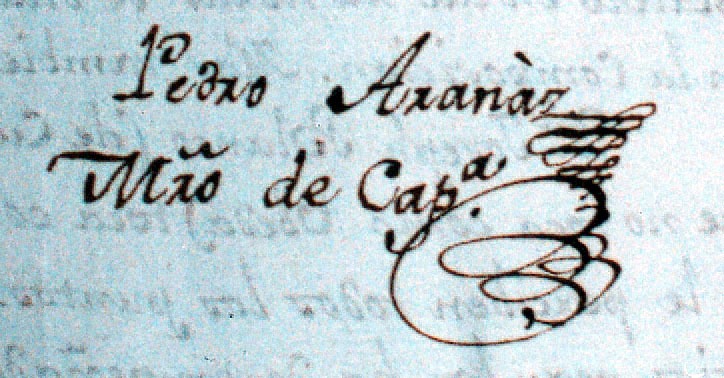 Pedro Aranàz
Mr̃o de Capª.